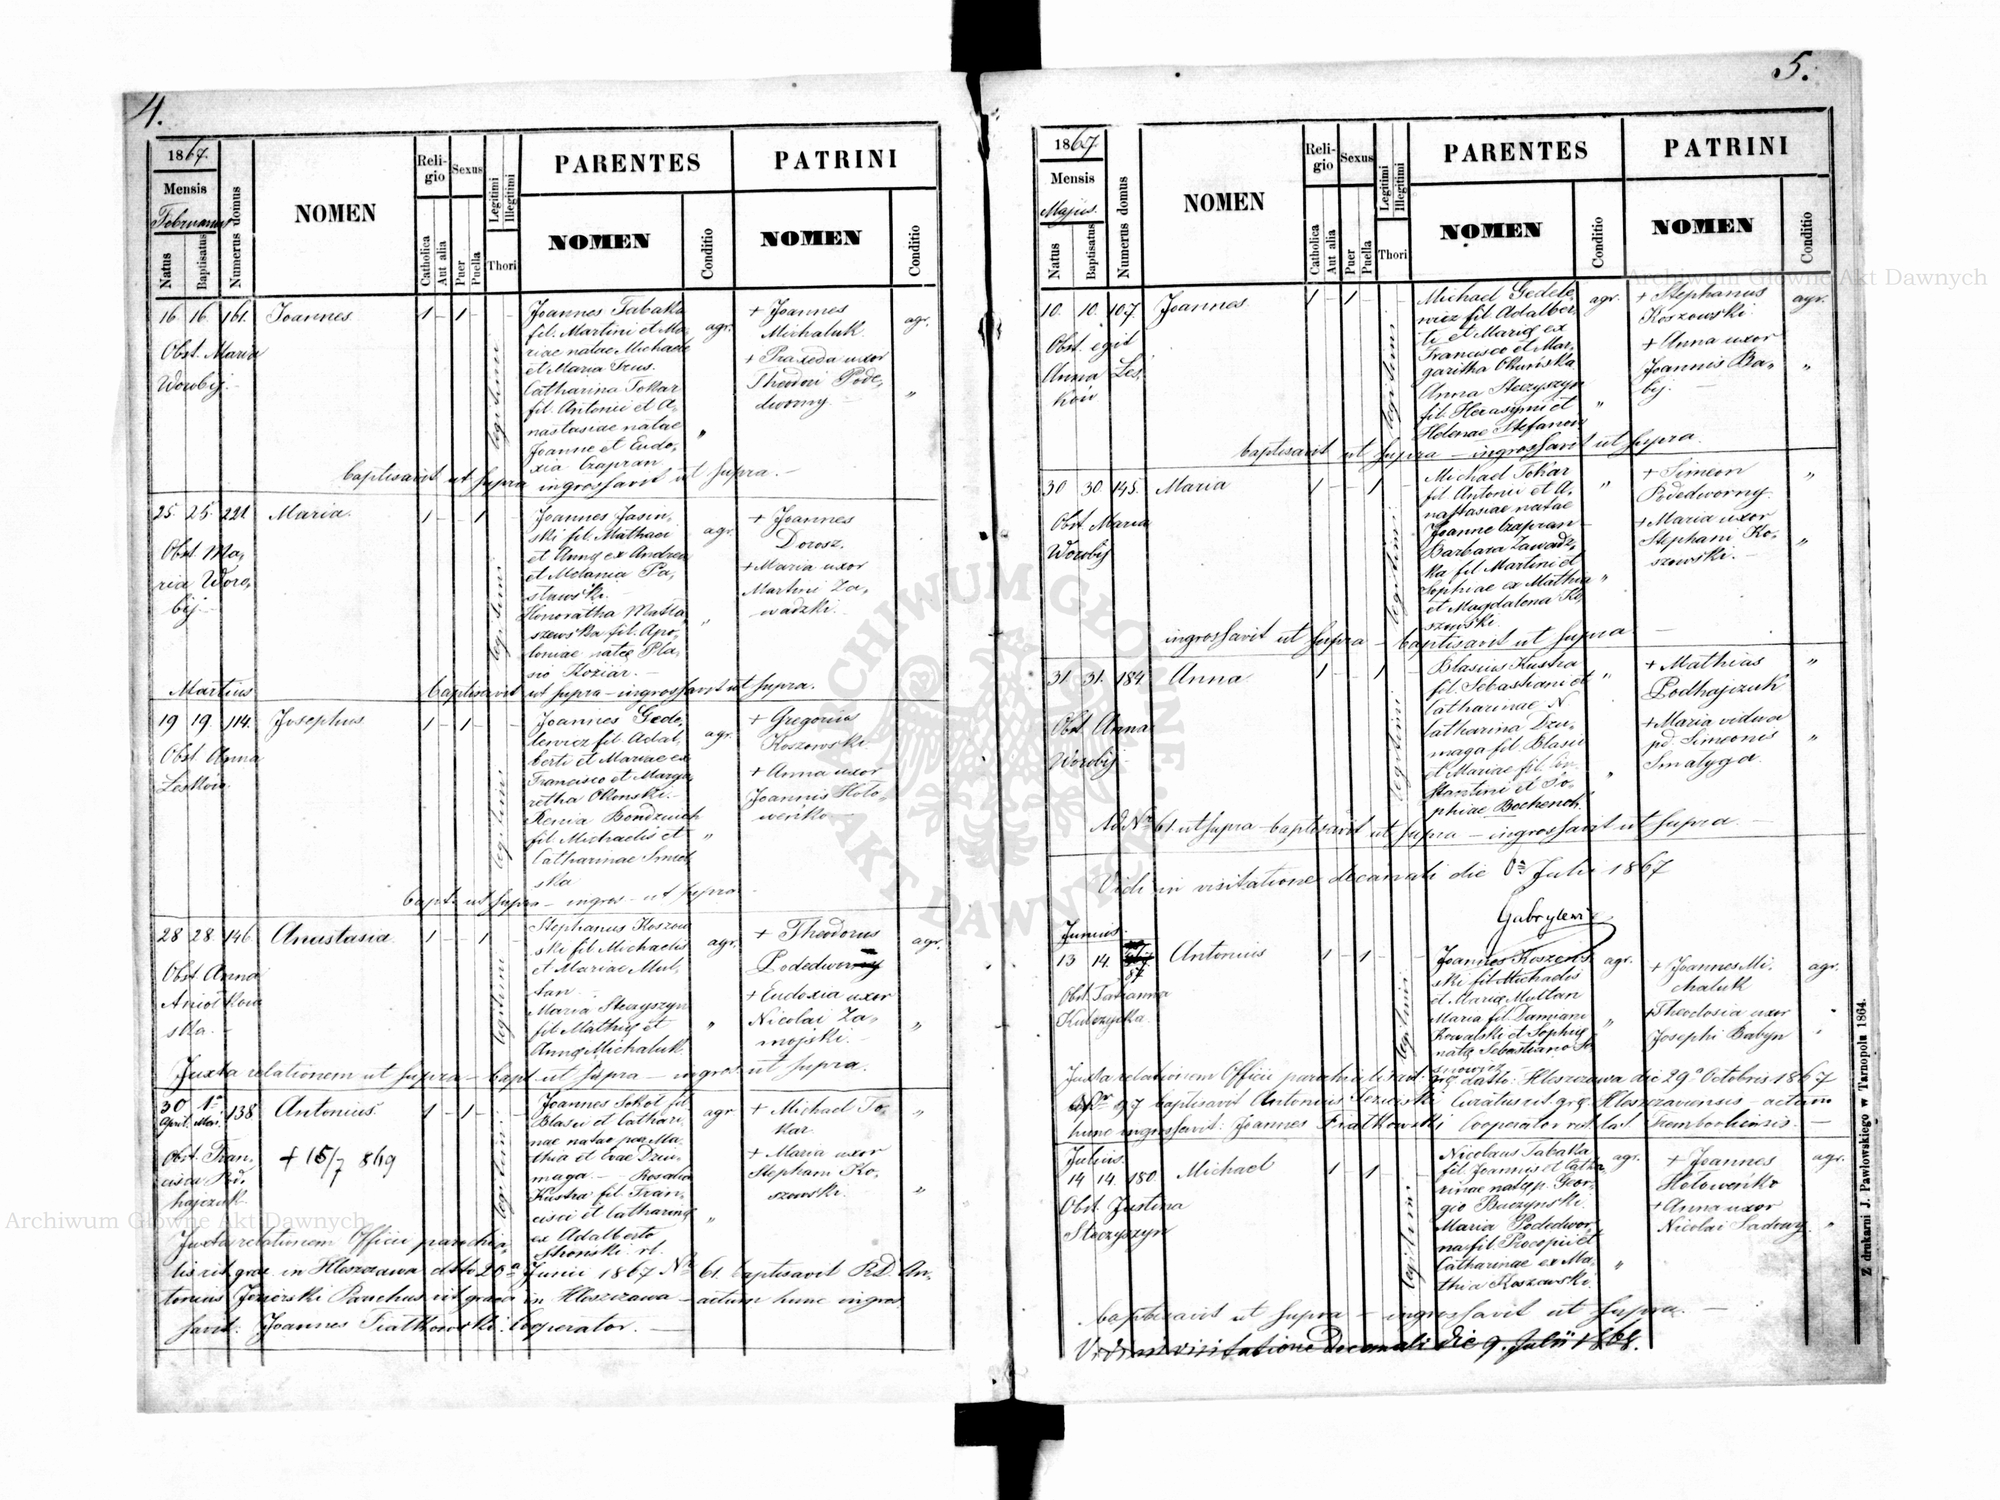 4.
1867.
Mensis
Februarius
Natus
Baptisatus
Numerus domus
NOMEN
Religio
Catholica
Aut alia
Sexus
Puer
Puella
Legitimi
Illegitimi
Thori
PARENTES
NOMEN
Conditio
PATRINI
NOMEN
Conditio
16. 16. 161. Joannes 1 - 1 -
Obst. Maria
Worobij. -
legitimi
Joannes Tabaka
fil. Martini et Ma-
riae natae Michaele
et Maria Trus.
Catharina Tokar
fil. Antonii et A-
nastasiae natae
Joanne et Eudo-
xia Czapran
agr.
"
+ Joannes
Michaluk
+ Praxeda uxor
Theodori Pode-
dworny. -
agr.
"
baptisavit ut supra ingrossavit ut supra. -
25. 25. 221 Maria. 1 - 1
Obst. Ma-
ria Woro-
bij. -
legitimi
Joannes Jasin-
ski fil. Mathaei
et Annę ex Andrea
et Melania Pa-
sławski. -
Honoratha Matła
szewska fil. Apo-
loniae natę Pla-
Koziar. -
agr.
"
+ Joannes
Dorosz.
+ Maria uxor
Martini Za-
wadzki. -
Martius
baptisavit ut supra - ingrossavit ut supra.
19 19. 114. Josephus 1 - 1 -
Obst. Anna
Leskow.
legitimi
Joannes Gede-
lewicz fil. Adal-
berti et Mariae ex
Francisco et Marga
retha Okonski. -
Xenia Bondzuich
fil. Michaelis et
Catharinae Smol-
ska
agr.
"
+ Gregorius
Koszowski.
+ Anna uxor
Joannis Hoło-
weńko -
bapt. ut supra - ingros - ut supra -
28 28. 146. Anastasia. 1 - 1
Obst. Anna
Aniołkow
ska. -
legitimi
Stephanus Koszow
ski fil. Michaelis
et Mariae Mul-
tan -
Maria Steczyszyn
fil. Mathię et
Annę Michaluk.
agr.
"
+ Theodorus
Pododworny
+ Eudoxia uxor
Nicolai Za-
mojski. -
agr.
"
Juxta relationem ut supra - bapt. ut supra - ingros ut supra.
30 1ª 138. Antonius. 1 - 1 -
April. Mai.
Obst. Fran-
cisca Pod-
hajczuk
+ 15/7 869
legitimi
Joannes Sokół fil.
Blasii et Cathari-
nae natae per Ma-
thia et Evae Dzu-
maga. - Rosalia
Kustra fil. Fran-
cisci et Catharinę
ex Adalberto
agr
"
+ Michael To-
kar.
+ Maria uxor
Stephani Ko-
szowski.
"
"
Juxta relationem Officii parochia-
lis rit. grae. in Hleszczawa ddto 20ª Junii 1867 Nr. 61. baptisavit RD. An-
tonius Jezierski Parochus rit. graeci in Hleszczawa - actum hunc ingros
savit. Joannes Fiałkowski Cooperator. -
5.
1867.
Mensis
Majus.
Natus
Baptisatus
Numerus domus
NOMEN
Religio
Catholica
Aut alia
Sexus
Puer
Puella
Legitimi
Illegitimi
Thori
PARENTES
NOMEN
Conditio
PATRINI
NOMEN
Conditio
10. 10. 107. Joannes 1 - 1 -
Obst. egit
Anna Les-
ków
legitimi
Michael Gedele-
wicz fil. Adalber-
ti et Marię ex
Francisco et Mar-
garitha Okuńska.
Anna Steczyszyn
fil. Herasymi et
Helenae Stefanow
agr.
"
+ Stephanus
Koszowski.
+ Anna uxor
Joannis Ba-
bij. -
agr.
"
baptisavit ut supra - ingrossavit ut supra.
30 30. 145. Maria 1 - 1
Obst. Maria
Worobij
legitimi
Michael Tokar
fil. Antonii et A-
nastasiae natae
Joanne Czapran -
Barbara Zawadz-
ka fil. Martini et
Sophiae ex Mathia
et Magdalena Ko-
szowski.
"
"
+ Simeon
Podedworny.
+ Maria uxor
Stephani Ko-
szowski. -
"
"
ingrossavit ut supra - baptisavit ut supra -
31. 31. 184. Anna 1 - 1
Obst. Anna
Worobij
legitimi
Blasius Kustra
fil. Sebastiani et
Catharinae N.
Catharina Dzu-
maga fil. Blasii
et Mariae fil. Con-
stantini et So-
phiae Bochenek.
"
"
+ Mathias
Podhajczuk
+ Maria vidua
pd. Simeonis
Smałyga
"
"
Ad Nr. 61. ut supra - baptisavit ut supra - ingrossavit ut supra. -
Vidi in visitatione decanali die Julii 1867
Gabrylewi
Junius.
13 14. 87 Antonius 1 - 1 -
Obst. Tatianna
Kulczycka.
legitimi
Joannes Koszow
ski fil. Michaelis
et Marię Multan
Maria fil. Damiani
Kowalski et Sophię
natę Sebastiano So
agr.
"
+ Joannes Mi-
chaluk
+ Theodosia uxor
Josephi Babyn
agr.
Juxta relationem Officii parochialis rit. grę ddto: Hleszczawa die 29ª Octobris 1867
Nr 97 baptisavit Antonius Jezierski Curatus rit. grę Hleszczavensis - actum
hunc ingrossavit: Joannes Fiałkowski Cooperator rit. lat. Trembovliensis. -
Julius.
14 14. 180. Michael 1 - 1 -
Obst. Justina
Steczyszyn
legitimi
Nicolaus Tabaka
fil. Joannis et Catha
rinae nata p. Geor-
gio Buczynski.
Maria Podedwor-
na fil. Procopii et
Catharinae ex Ma-
thia Koszowski.
agr.
"
+ Joannes
Hołoweńko
+ Anna uxor
Nicolai Sadowy
agr.
"
baptisavit ut supra - ingrossavit ut supra. -
Vidi in visitatione decanali die 9. Julii 1868.
Z drukarni J. Pawłowskiego w Tarnopolu 1864.
Archiwum Główne Akt Dawnych
Archiwum Główne Akt Dawnych
ARCHIWUM GŁÓWNE AKT DAWNYCH